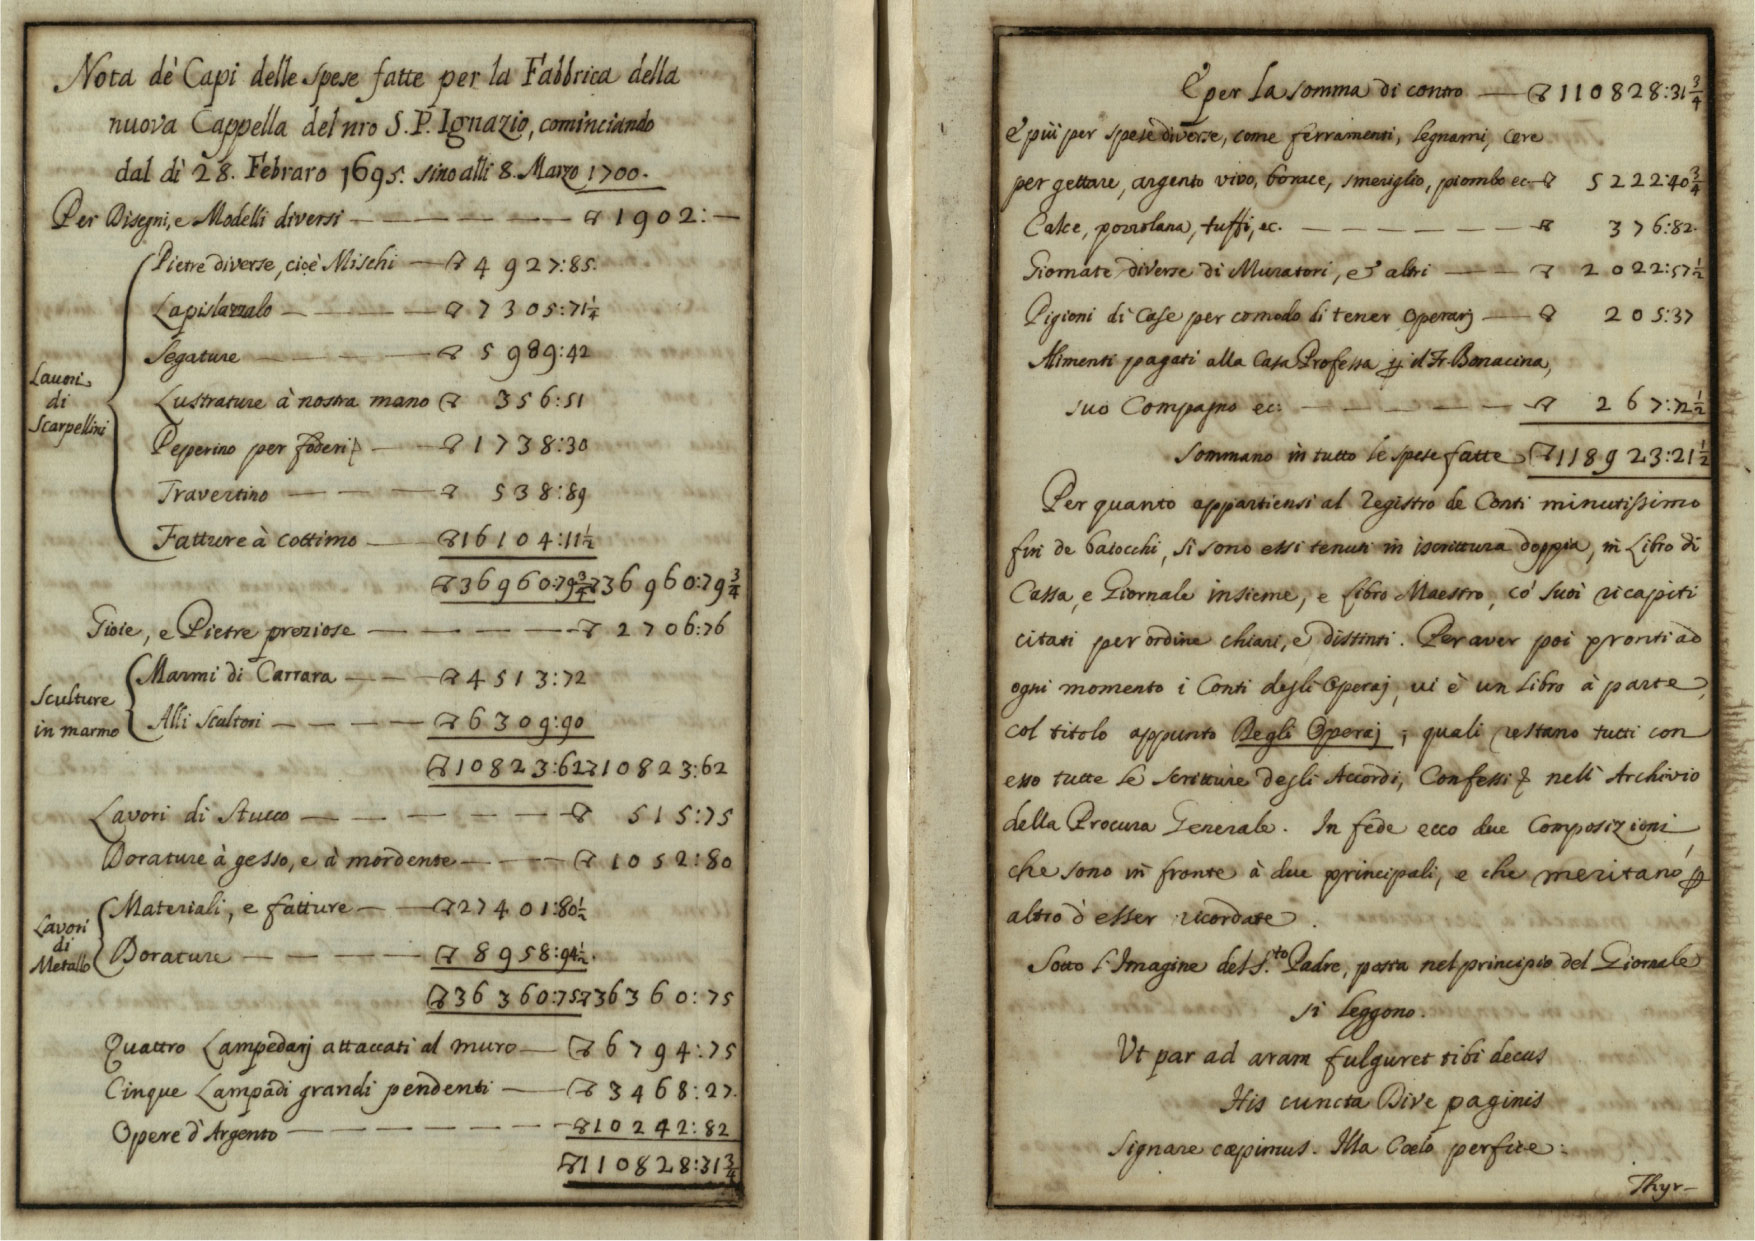 Nota de' Capi delle spese fatte per la Fabbrica della
nuova Cappella del nro S. P. Ignazio, cominciando
dal dì 28. Febraro 1695. sino alli 8. Marzo 1700.
Per Disegni, e Modelli diversi — ▽ 1902:—
Lavori di Scarpellini
Pietre diverse, cioè Mischi — ▽ 4927:85.
Lapislazzalo — ▽ 7305:71¼
Segature — ▽ 5989:42
Lustrature à nostra mano ▽ 356:51
Peperino per foderi — ▽ 1738:30
Travertino — ▽ 538:89
Fatture à cottimo — ▽ 16104:11½
▽ 36960:79¾ ▽ 36960:79¾
Gioie, e Pietre preziose — ▽ 2706:76
Sculture in marmo
Marmi di Carrara — ▽ 4513:72
Alli Scultori — ▽ 6309:90
▽ 10823:62 ▽ 10823:62
Lavori di Stucco — ▽ 515:75
Dorature à gesso, e à mordente — ▽ 1052:80
Lavori di Metallo
Materiali, e fatture — ▽ 27401:80½
Dorature — ▽ 8958:94½.
▽ 36360:75 ▽ 36360:75
Quattro Lampedarj attaccati al muro — ▽ 6794:75
Cinque Lampadi grandi pendenti — ▽ 3468:27.
Opere d'Argento — ▽ 10242:82
▽ 110828:31¾
E per la somma di contro — ▽ 110828:31¾
E più per spese diverse, come ferramenti, legnami, cere
per gettare, argento vivo, borace, smeriglio, piombo ec — ▽ 5222:40¾
Calce, pozzolana, tuffi, ec. — ▽ 376:82.
Giornate diverse di Muratori, et altri — ▽ 2022:57½
Pigioni di Case per comodo di tener Operarj — ▽ 205:37
Alimenti pagati alla Casa Professa p il Fr. Bonacina,
suo Compagno ec: — ▽ 267:72½
Sommano in tutto le spese fatte ▽ 118923:21½
Per quanto appartiensi al Registro de Conti minutissimo
fin de baiocchi, si sono essi tenuti in iscrittura doppia, in Libro di
Cassa, e Giornale insieme, e Libro Maestro, co' suoi ricapiti
citati per ordine chiari, e distinti. Per aver poi pronti ad
ogni momento i Conti degli Operaj, vi è un Libro à parte,
col titolo appunto Degli Operaj; quali restano tutti con
esso tutte le scritture degli Accordi, Confessi nell' Archivio
della Procura Generale. In fede ecco due Composizioni,
che sono in fronte à due principali, e che meritano p
altro d'esser ricordate.
Sotto l'Imagine del S.to Padre, posta nel principio del Giornale
si leggono.
Ut par ad aram fulguret tibi decus
His cuncta Dive paginis
Signare cœpimus. Illa Cœlo perfice:
Thyr-